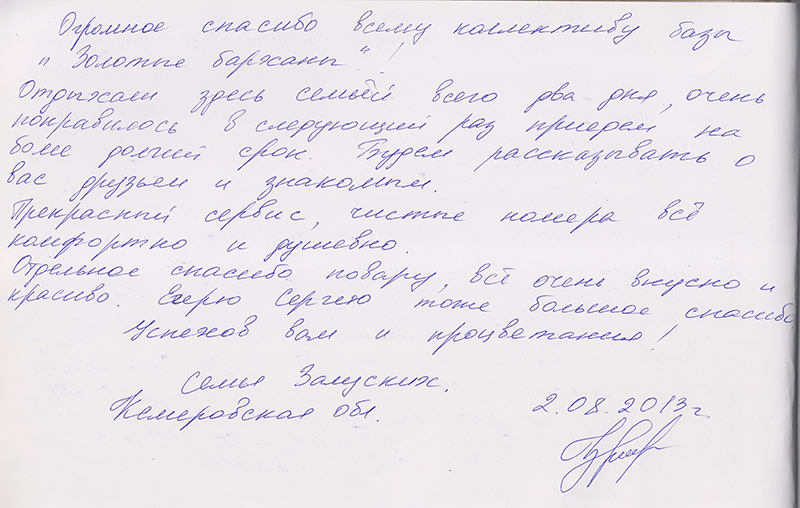 Огромное спасибо всему коллективу базы
"Золотые барханы"!
Отдыхали здесь семьёй всего два дня, очень
понравилось в следующий раз приедем на
более долгий срок. Будем рассказывать о
вас друзьям и знакомым.
Прекрасный сервис, чистые номера всё
комфортно и душевно.
Отдельное спасибо повару, всё очень вкусно и
красиво. Егерю Сергею тоже большое спасибо
Успехов вам и процветания!
Семья Залуских.
Кемеровская обл.
2.08.2013г.